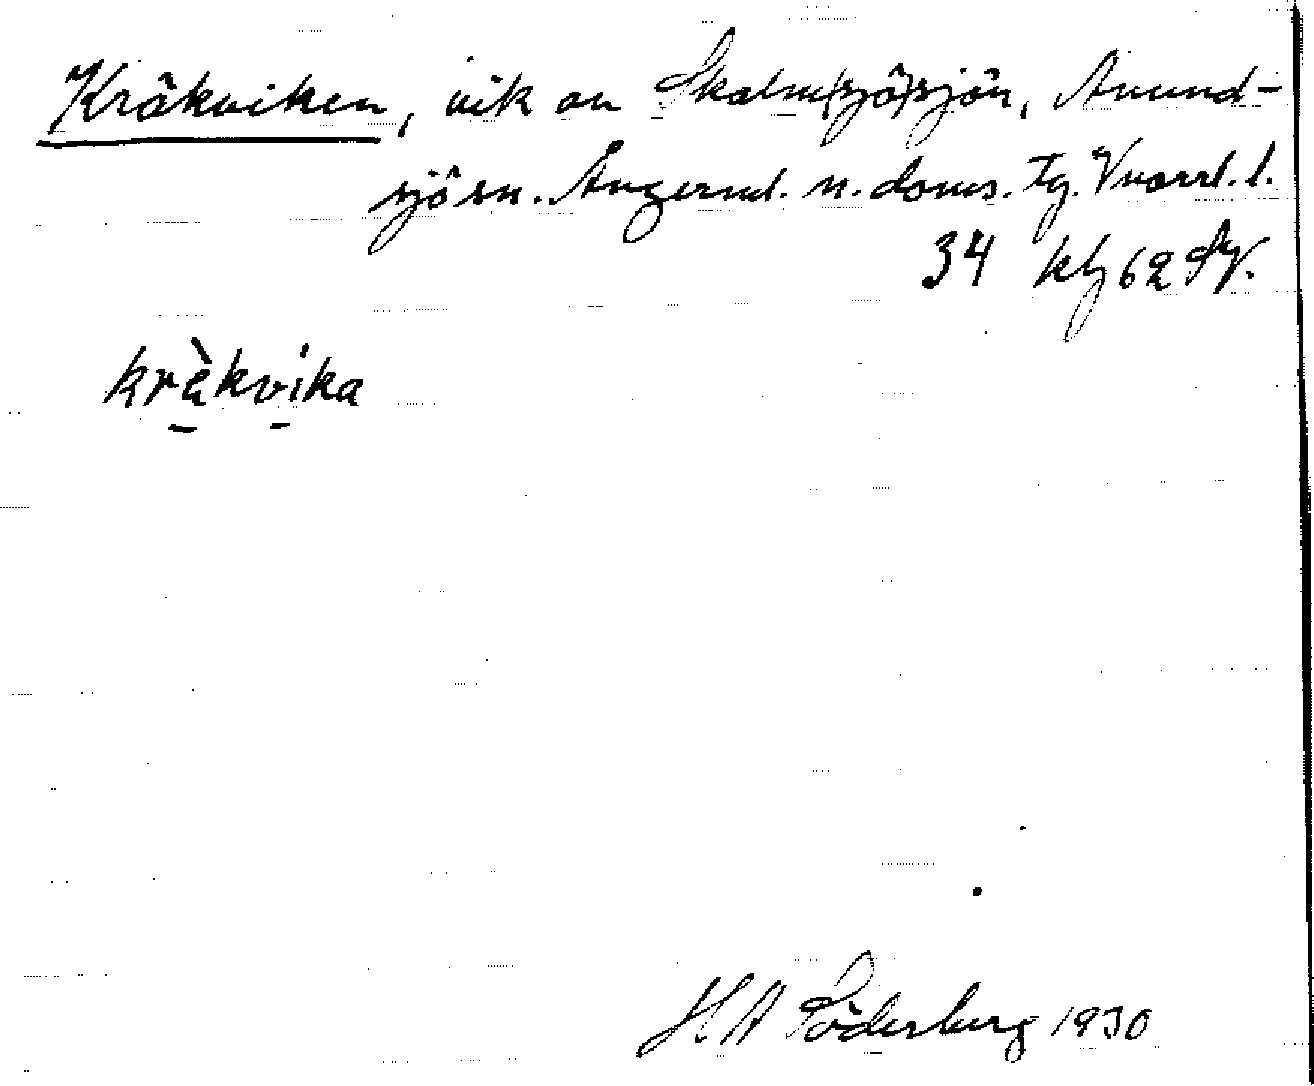 Kråkviken, vik av Skalm(sjö)sjön, Anund-
sjö sn. Ångerml. n. doms. tg. Vnorrl. l.
34 kb 62 SV.
kràkvika
H A Söderberg 1930